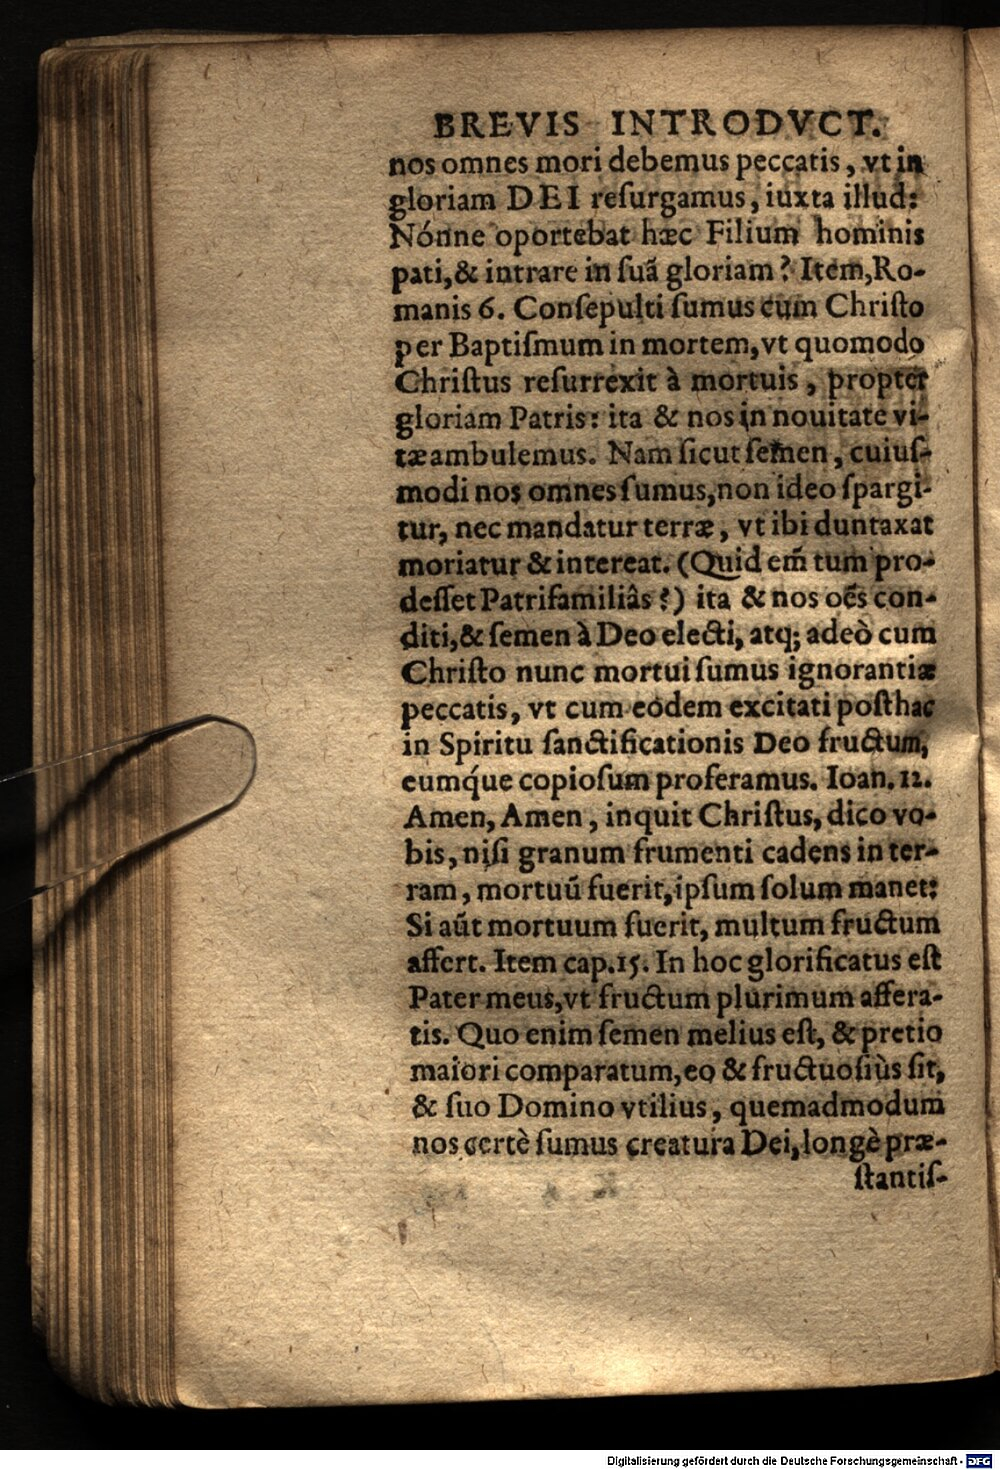 BREVIS INTRODVCT.
nos omnes mori debemus peccatis, vt in
gloriam DEI reſurgamus, iuxta illud:
Nónne oportebat hæc Filium hominis
pati, & intrare in ſuã gloriam? Item, Ro-
manis 6. Conſepulti ſumus cum Chriſto
per Baptiſmum in mortem, vt quomodo
Chriſtus reſurrexit à mortuis, propter
gloriam Patris: ita & nos in nouitate vi-
tæ ambulemus. Nam ſicut ſemen, cuiuſ-
modi nos omnes ſumus, non ideo ſpargi-
tur, nec mandatur terræ, vt ibi duntaxat
moriatur & intereat. (Quid em̃ tum pro-
deſſet Patrifamiliâs?) ita & nos oẽs con-
diti, & ſemen à Deo electi, atq; adeò cum
Chriſto nunc mortui ſumus ignorantiæ
peccatis, vt cum eodem excitati poſthac
in Spiritu ſanctificationis Deo fructum,
eumq́ue copioſum proferamus. Ioan. 12.
Amen, Amen, inquit Chriſtus, dico vo-
bis, niſi granum frumenti cadens in ter-
ram, mortuũ fuerit, ipſum ſolum manet:
Si aũt mortuum fuerit, multum fructum
affert. Item cap. 15. In hoc glorificatus eſt
Pater meus, vt fructum plurimum affera-
tis. Quo enim ſemen melius eſt, & pretio
maiori comparatum, eo & fructuoſiùs ſit,
& ſuo Domino vtilius, quemadmodum
nos certè ſumus creatura Dei, longè præ-
ſtantiſ-
Digitalisierung gefördert durch die Deutsche Forschungsgemeinschaft - DFG